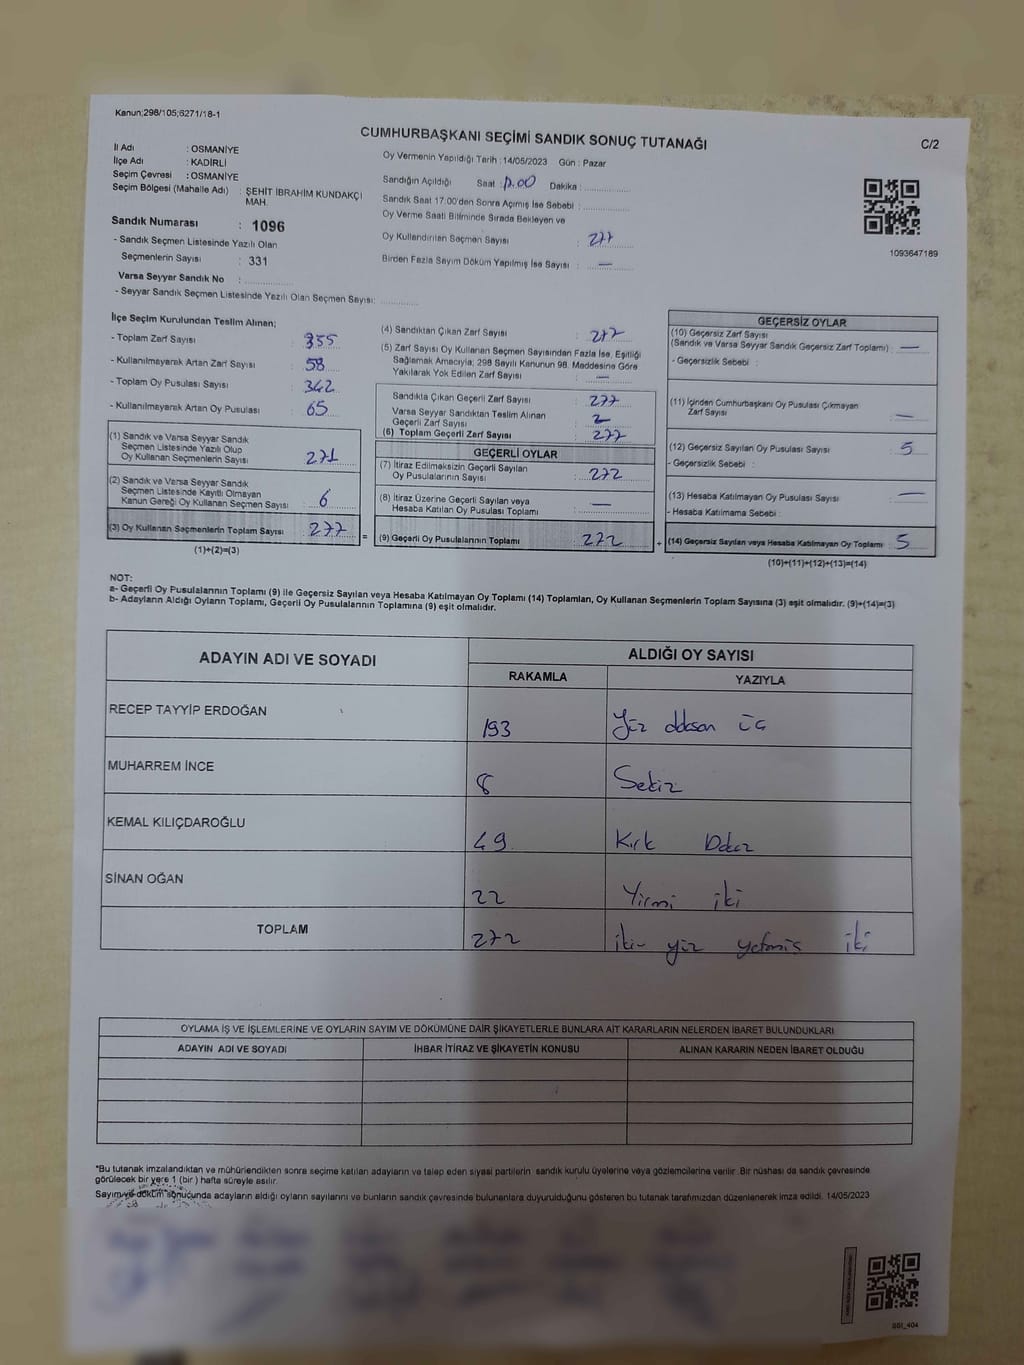 Kanun;298/105;6271/18-1
CUMHURBAŞKANI SEÇİMİ SANDIK SONUÇ TUTANAĞI
C/2
İl Adı : OSMANİYE
İlçe Adı : KADİRLİ
Seçim Çevresi : OSMANİYE
Seçim Bölgesi (Mahalle Adı) : ŞEHİT İBRAHİM KUNDAKÇI MAH.
Sandık Numarası : 1096
- Sandık Seçmen Listesinde Yazılı Olan
Seçmenlerin Sayısı : 331
Varsa Seyyar Sandık No :
- Seyyar Sandık Seçmen Listesinde Yazılı Olan Seçmen Sayısı:
Oy Vermenin Yapıldığı Tarih : 14/05/2023 Gün : Pazar
Sandığın Açıldığı Saat : Dakika :
Sandık Saat 17:00'den Sonra Açılmış İse Sebebi :
Oy Verme Saati Bitiminde Sırada Bekleyen ve
Oy Kullandırılan Seçmen Sayısı : 277
Birden Fazla Sayım Döküm Yapılmış İse Sayısı : —
1093647189
İlçe Seçim Kurulundan Teslim Alınan;
- Toplam Zarf Sayısı : 355
- Kullanılmayarak Artan Zarf Sayısı : 58
- Toplam Oy Pusulası Sayısı : 342
- Kullanılmayarak Artan Oy Pusulası : 65
(1) Sandık ve Varsa Seyyar Sandık
Seçmen Listesinde Yazılı Olup
Oy Kullanan Seçmenlerin Sayısı : 271
(2) Sandık ve Varsa Seyyar Sandık
Seçmen Listesinde Kayıtlı Olmayan
Kanun Gereği Oy Kullanan Seçmen Sayısı : 6
(3) Oy Kullanan Seçmenlerin Toplam Sayısı : 277
(1)+(2)=(3)
=
(4) Sandıktan Çıkan Zarf Sayısı : 277
(5) Zarf Sayısı Oy Kullanan Seçmen Sayısından Fazla İse, Eşitliği
Sağlamak Amacıyla; 298 Sayılı Kanunun 98. Maddesine Göre
Yakılarak Yok Edilen Zarf Sayısı : —
Sandıkta Çıkan Geçerli Zarf Sayısı : 277
Varsa Seyyar Sandıktan Teslim Alınan
Geçerli Zarf Sayısı :
(6) Toplam Geçerli Zarf Sayısı : 277
GEÇERLİ OYLAR
(7) İtiraz Edilmeksizin Geçerli Sayılan
Oy Pusulalarının Sayısı : 272
(8) İtiraz Üzerine Geçerli Sayılan veya
Hesaba Katılan Oy Pusulası Toplamı : —
(9) Geçerli Oy Pusulalarının Toplamı : 272
+
GEÇERSİZ OYLAR
(10) Geçersiz Zarf Sayısı
(Sandık ve Varsa Seyyar Sandık Geçersiz Zarf Toplamı) : —
- Geçersizlik Sebebi :
(11) İçinden Cumhurbaşkanı Oy Pusulası Çıkmayan
Zarf Sayısı : —
(12) Geçersiz Sayılan Oy Pusulası Sayısı : 5
- Geçersizlik Sebebi :
(13) Hesaba Katılmayan Oy Pusulası Sayısı : —
- Hesaba Katılmama Sebebi :
(14) Geçersiz Sayılan veya Hesaba Katılmayan Oy Toplamı : 5
(10)+(11)+(12)+(13)=(14)
NOT:
a- Geçerli Oy Pusulalarının Toplamı (9) ile Geçersiz Sayılan veya Hesaba Katılmayan Oy Toplamı (14) Toplamları, Oy Kullanan Seçmenlerin Toplam Sayısına (3) eşit olmalıdır. (9)+(14)=(3)
b- Adayların Aldığı Oyların Toplamı, Geçerli Oy Pusulalarının Toplamına (9) eşit olmalıdır.
ADAYIN ADI VE SOYADI
ALDIĞI OY SAYISI
RAKAMLA YAZIYLA
RECEP TAYYİP ERDOĞAN 193 Yüz doksan üç
MUHARREM İNCE 8 Sekiz
KEMAL KILIÇDAROĞLU 49 Kırk Dokuz
SİNAN OĞAN 22 Yirmi iki
TOPLAM 272 iki yüz yetmiş iki
OYLAMA İŞ VE İŞLEMLERİNE VE OYLARIN SAYIM VE DÖKÜMÜNE DAİR ŞİKAYETLERLE BUNLARA AİT KARARLARIN NELERDEN İBARET BULUNDUKLARI
ADAYIN ADI VE SOYADI İHBAR İTİRAZ VE ŞİKAYETİN KONUSU ALINAN KARARIN NEDEN İBARET OLDUĞU
*Bu tutanak imzalandıktan ve mühürlendikten sonra seçime katılan adayların ve talep eden siyasi partilerin sandık kurulu üyelerine veya gözlemcilerine verilir. Bir nüshası da sandık çevresinde
görülecek bir yere 1 (bir) hafta süreyle asılır.
Sayım ve döküm sonucunda adayların aldığı oyların sayılarını ve bunların sandık çevresinde bulunanlara duyurulduğunu gösteren bu tutanak tarafımızdan düzenlenerek imza edildi. 14/05/2023